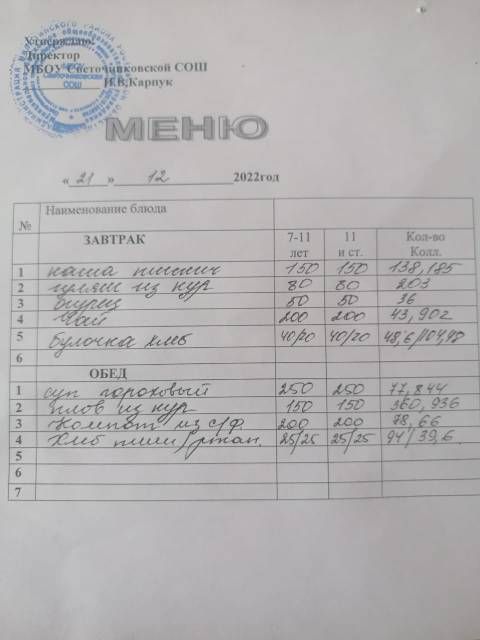 Утверждаю:
Директор
МБОУ Светочниковской СОШ
И.В.Карпук
МЕНЮ
« 21 » 12 2022год
№ Наименование блюда
ЗАВТРАК 7-11 лет 11 и ст. Кол-во Колл.
1 каша пшенич 150 150 138,185
2 гуляш из кур 80 80 203
3 50 50 36
4 Чай 200 200 43,902
5 Булочка хлеб 40/20 40/20 48,6/104,48
6
ОБЕД
1 суп гороховый 250 250 77,844
2 плов из кур 150 150 360,936
3 Компот из с/ф. 200 200 78,66
4 Хлеб пшен/ржан. 25/25 25/25 94/39,6
5
6
7